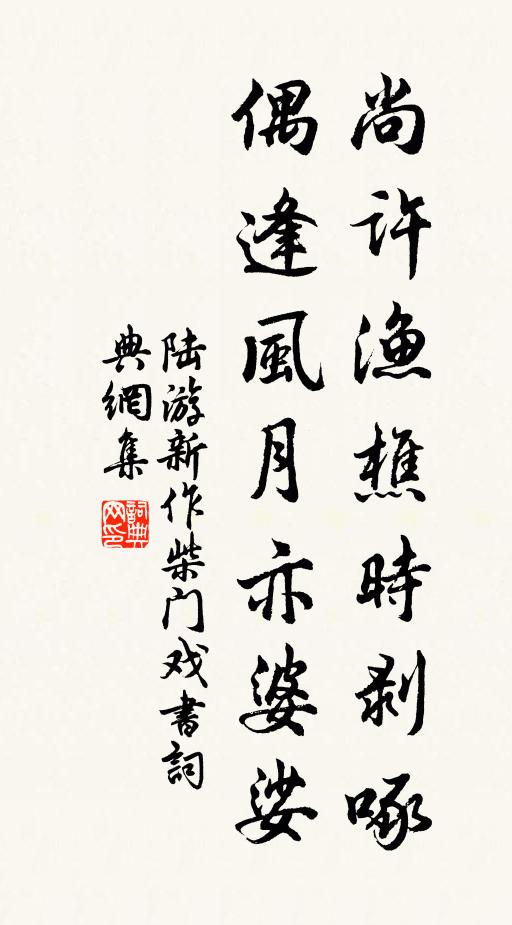 尚許漁樵時剥啄
偶逢風月亦婆娑
陆游新作柴门戏書詞
典網集
詞典
网印